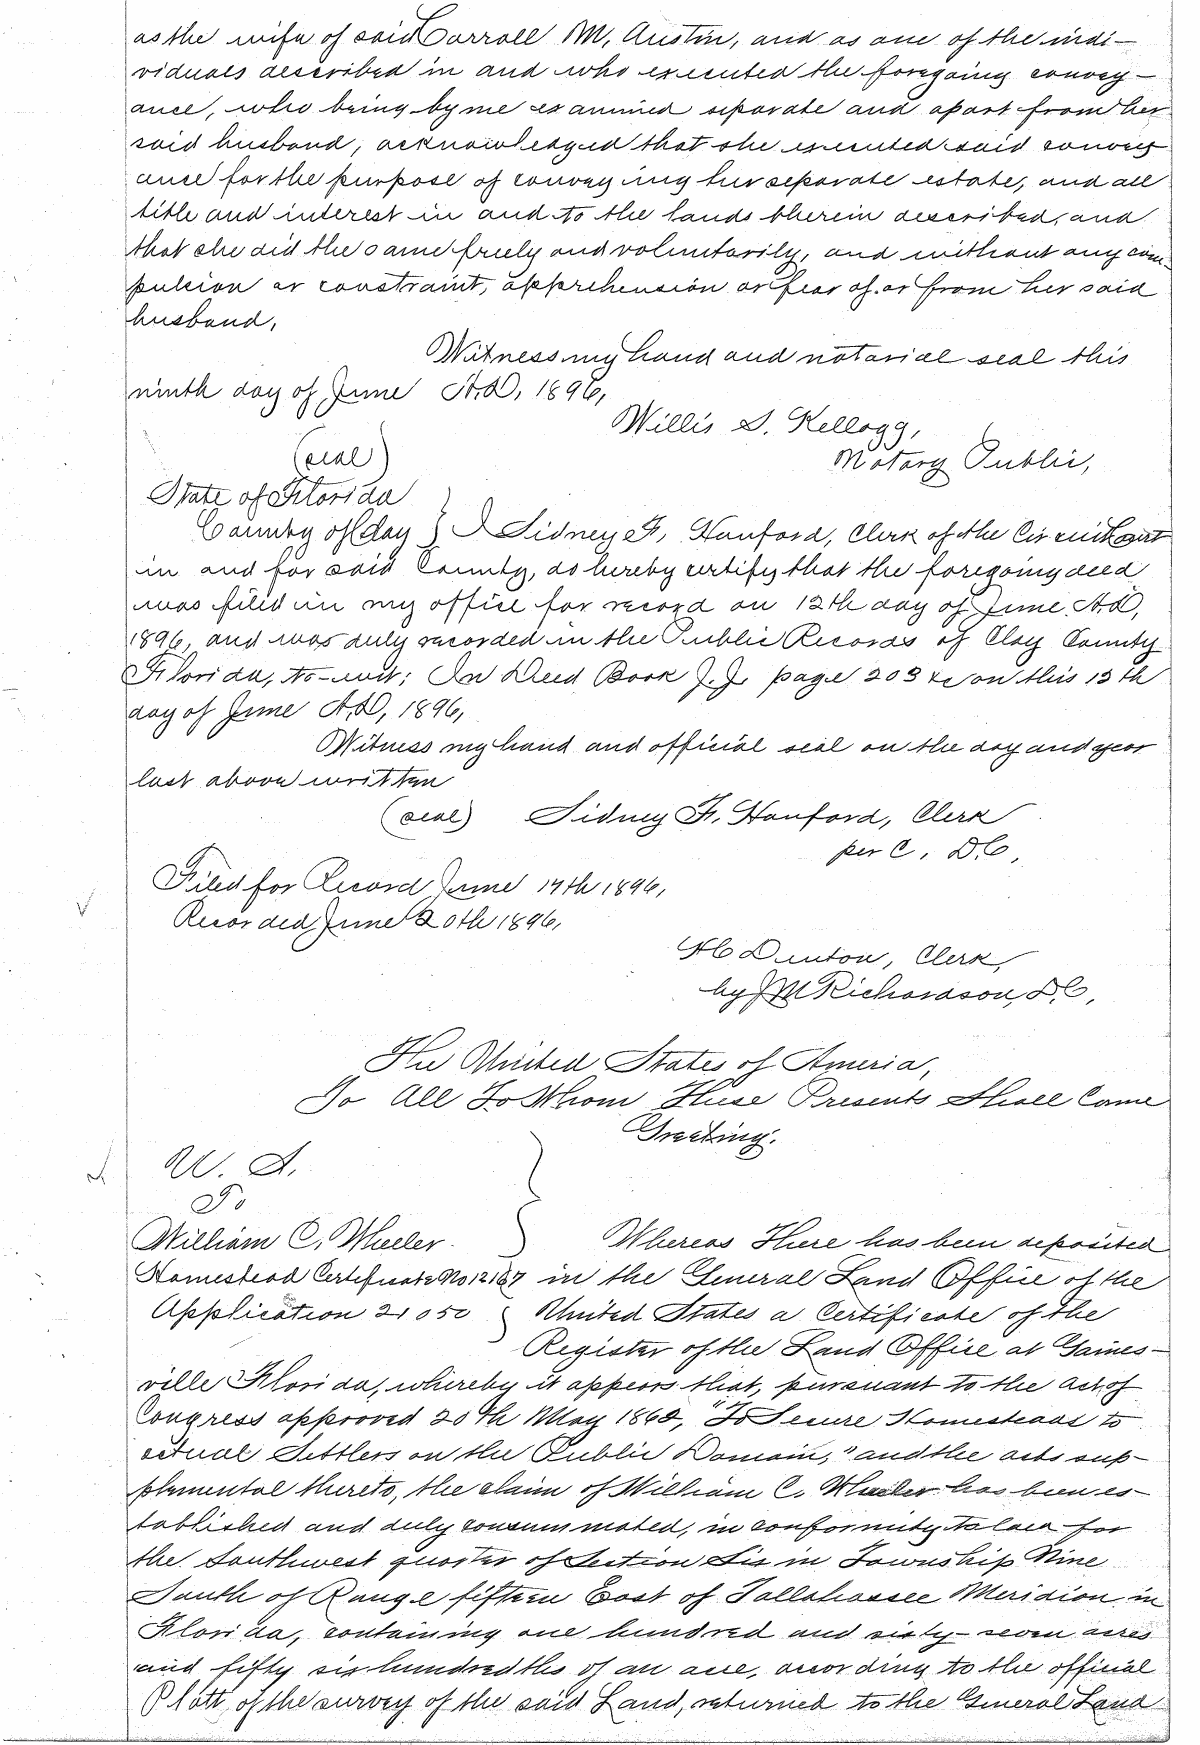 as the wife of said Carroll M. Austin, and as one of the indi-
viduals described in and who executed the foregoing convey-
ance, who being by me examined separate and apart from her
said husband, acknowledged that she executed said convey
ance for the purpose of conveying her separate estate, and all
title and interest in and to the lands therein described, and
that she did the same freely and voluntarily, and without any com-
pulsion or constraint, apprehension or fear of or from her said
husband,
Witness my hand and notarial seal this
ninth day of June A.D, 1896,
Willis S. Kellogg,
Notary Public,
(seal)
State of Florida
County of Clay } I Sidney F, Hanford, Clerk of the Circuit Court
in and for said County, do hereby certify that the foregoing deed
was filed in my office for record on 12th day of June A.D,
1896, and was duly recorded in the Public Records of Clay County
Florida, to-wit; In Deed Book J.J. page 203 &c on this 13th
day of June A.D, 1896,
Witness my hand and official seal on the day and year
last above written
(seal) Sidney F. Hanford, Clerk
per C. D.C,
Filed for Record June 19th 1896,
Recorded June 20th 1896,
Denton, Clerk,
by J M Richardson, D.C,
The United States of America,
To All To Whom These Presents Shall Come
Greeting.
U. S.
To
William C. Wheeler
Whereas There has been deposited
Homestead Certificate No 12167 in the General Land Office of the
Application 21050 United States a Certificate of the
Register of the Land Office at Gaines-
ville Florida, whereby it appears that, pursuant to the act of
Congress approved 20th May 1862, "To Secure Homesteads to
actual Settlers on the Public Domain," and the acts sup-
plemental thereto, the claim of William C. Wheeler has been es-
tablished and duly consummated, in conformity to law for
the Southwest quarter of Section Six in Township Nine
South of Range fifteen East of Tallahassee Meridian in
Florida, containing one hundred and sixty-seven acres
and fifty six hundredths of an acre, according to the official
Platt, of the survey of the said Land, returned to the General Land